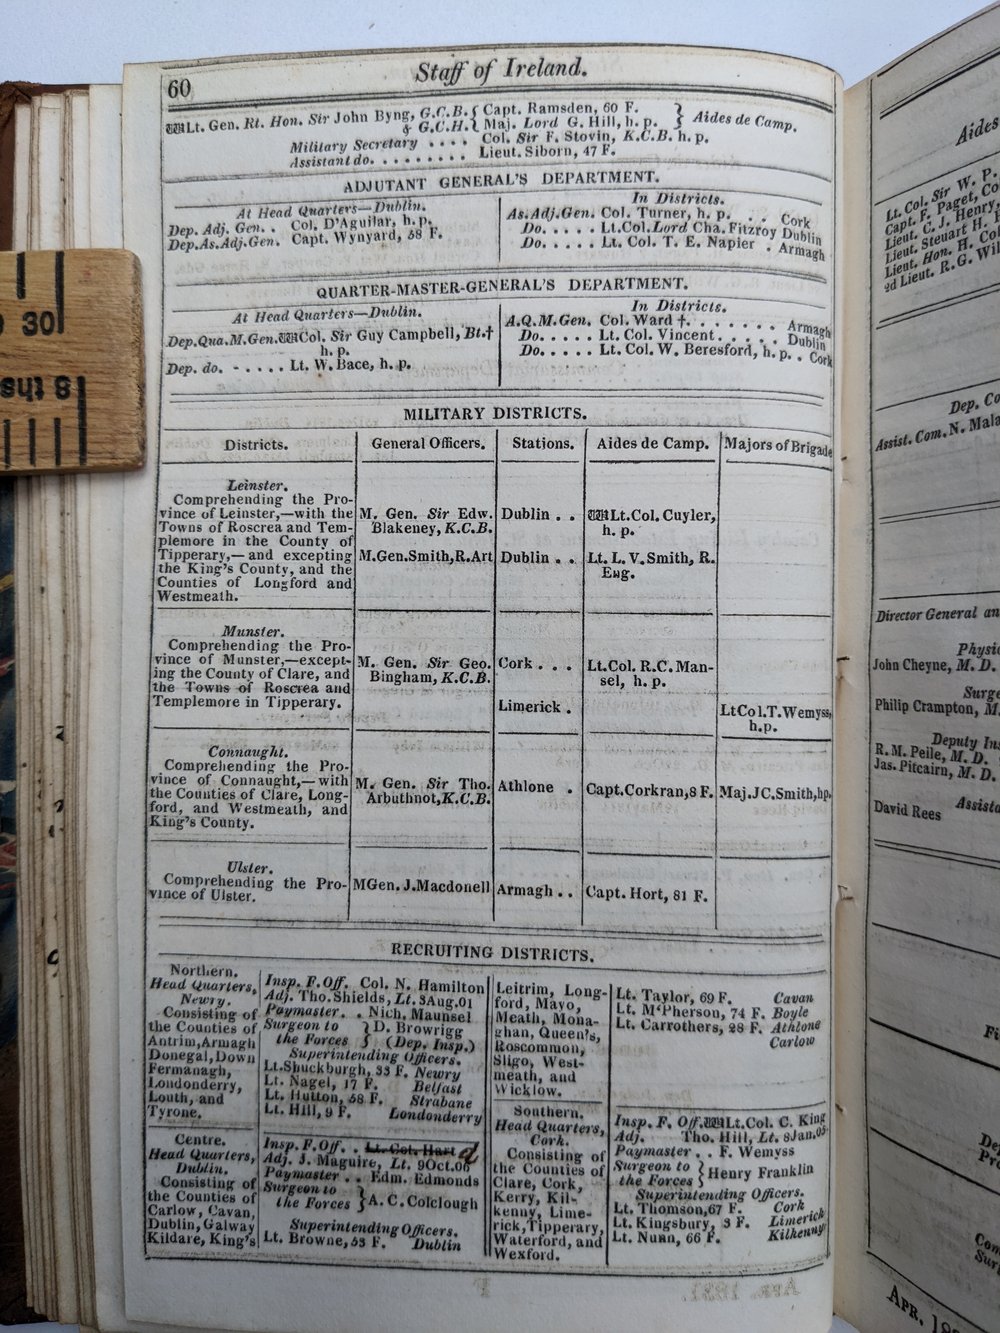 60
Staff of Ireland.
Lt. Gen. Rt. Hon. Sir John Byng, G.C.B. { Capt. Ramsden, 60 F. } Aides de Camp.
& G.C.H. { Maj. Lord G. Hill, h. p.
Military Secretary . . . . Col. Sir F. Stovin, K.C.B. h. p.
Assistant do. . . . . . . . . Lieut. Siborn, 47 F.
ADJUTANT GENERAL'S DEPARTMENT.
At Head Quarters—Dublin.
Dep. Adj. Gen. . Col. D'Aguilar, h. p.
Dep.As.Adj.Gen. Capt. Wynyard, 58 F.
In Districts.
As.Adj.Gen. Col. Turner, h. p. . . Cork
Do. . . . . Lt.Col.Lord Cha.Fitzroy Dublin
Do. . . . . Lt. Col. T. E. Napier . Armagh
QUARTER-MASTER-GENERAL'S DEPARTMENT.
At Head Quarters—Dublin.
Dep.Qua.M.Gen. Col. Sir Guy Campbell, Bt.†
h. p.
Dep. do. - . . . . Lt. W. Bace, h. p.
In Districts.
A.Q.M.Gen. Col. Ward †. . . . . . . Armagh
Do. . . . . Lt. Col. Vincent . . . . . Dublin
Do. . . . . Lt. Col. W. Beresford, h. p. . Cork
MILITARY DISTRICTS.
Districts. General Officers. Stations. Aides de Camp. Majors of Brigade
Leinster.
Comprehending the Pro-
vince of Leinster,—with the
Towns of Roscrea and Tem-
plemore in the County of
Tipperary,—and excepting
the King's County, and the
Counties of Longford and
Westmeath.
M. Gen. Sir Edw.
Blakeney, K.C.B.
M.Gen.Smith,R.Art
Dublin . .
Dublin . .
Lt.Col. Cuyler,
h. p.
Lt. L. V. Smith, R.
Eng.
Munster.
Comprehending the Pro-
vince of Munster,—except-
ing the County of Clare, and
the Towns of Roscrea and
Templemore in Tipperary.
M. Gen. Sir Geo.
Bingham, K.C.B.
Cork . . .
Limerick .
Lt.Col. R.C. Man-
sel, h. p.
LtCol.T.Wemyss,
h.p.
Connaught.
Comprehending the Pro-
vince of Connaught,—with
the Counties of Clare, Long-
ford, and Westmeath, and
King's County.
M. Gen. Sir Tho.
Arbuthnot, K.C.B.
Athlone .
Capt.Corkran,8 F.
Maj.JC.Smith,hp.
Ulster.
Comprehending the Pro-
vince of Ulster.
MGen. J.Macdonell
Armagh . .
Capt. Hort, 81 F.
RECRUITING DISTRICTS.
Northern.
Head Quarters,
Newry.
Consisting of
the Counties of
Antrim,Armagh
Donegal,Down
Fermanagh,
Londonderry,
Louth, and
Tyrone.
Insp. F.Off. Col. N. Hamilton
Adj. Tho.Shields, Lt. 3Aug.01
Paymaster. . Nich. Maunsel
Surgeon to } D. Browrigg
the Forces } (Dep. Insp.)
Superintending Officers.
Lt.Shuckburgh, 33 F. Newry
Lt. Nagel, 17 F. Belfast
Lt. Hutton, 58 F. Strabane
Lt. Hill, 9 F. Londonderry
Centre.
Head Quarters,
Dublin.
Consisting of
the Counties of
Carlow, Cavan,
Dublin, Galway
Kildare, King's
Insp.F.Off. . Lt. Col. Hart d
Adj. J. Maguire, Lt. 9Oct.06
Paymaster . . Edm. Edmonds
Surgeon to } A. C. Colclough
the Forces }
Superintending Officers.
Lt. Browne, 53 F. Dublin
Leitrim, Long-
ford, Mayo,
Meath, Mona-
ghan, Queen's,
Roscommon,
Sligo, West-
meath, and
Wicklow.
Lt. Taylor, 69 F. Cavan
Lt. M'Pherson, 74 F. Boyle
Lt. Carrothers, 28 F. Athlone
Carlow
Southern.
Head Quarters,
Cork.
Consisting of
the Counties of
Clare, Cork,
Kerry, Kil-
kenny, Lime-
rick,Tipperary,
Waterford, and
Wexford.
Insp. F. Off. Lt.Col. C. King
Adj. Tho. Hill, Lt. 8Jan.05
Paymaster . . F. Wemyss
Surgeon to } Henry Franklin
the Forces }
Superintending Officers.
Lt. Thomson,67 F. Cork
Lt. Kingsbury, 3 F. Limerick
Lt. Nunn, 66 F. Kilkenny
Aides
Lt. Col. Sir W. P.
Capt. F. Paget, Co
Lieut. C. J. Henry,
Lieut. Steuart H.
Lieut. Hon. H. Col
2d Lieut. R.G. Wil
Dep. Co
Assist. Com. N. Mala
Director General an
Physi
John Cheyne, M. D.
Surge
Philip Crampton, M.
Deputy Ins
R.M. Peile, M. D.
Jas. Pitcairn, M. D.
Assista
David Rees
Fi
De
Pro
Com
Sur
APR. 18
30
8 ths